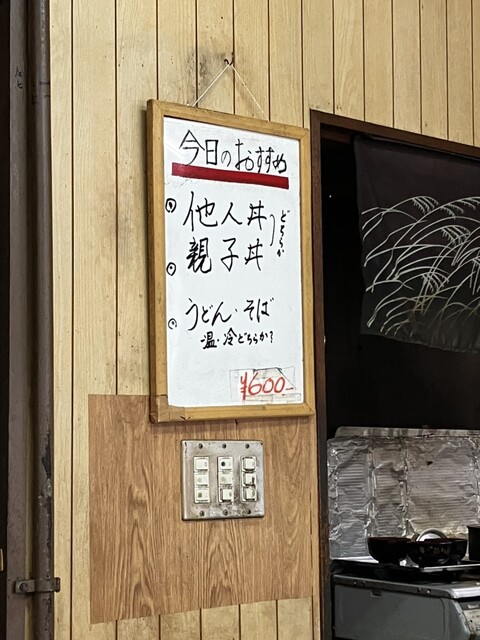 今日のおすすめ
他人丼
親子丼
どちらか
うどん・そば
温・冷どちらか?
¥600-